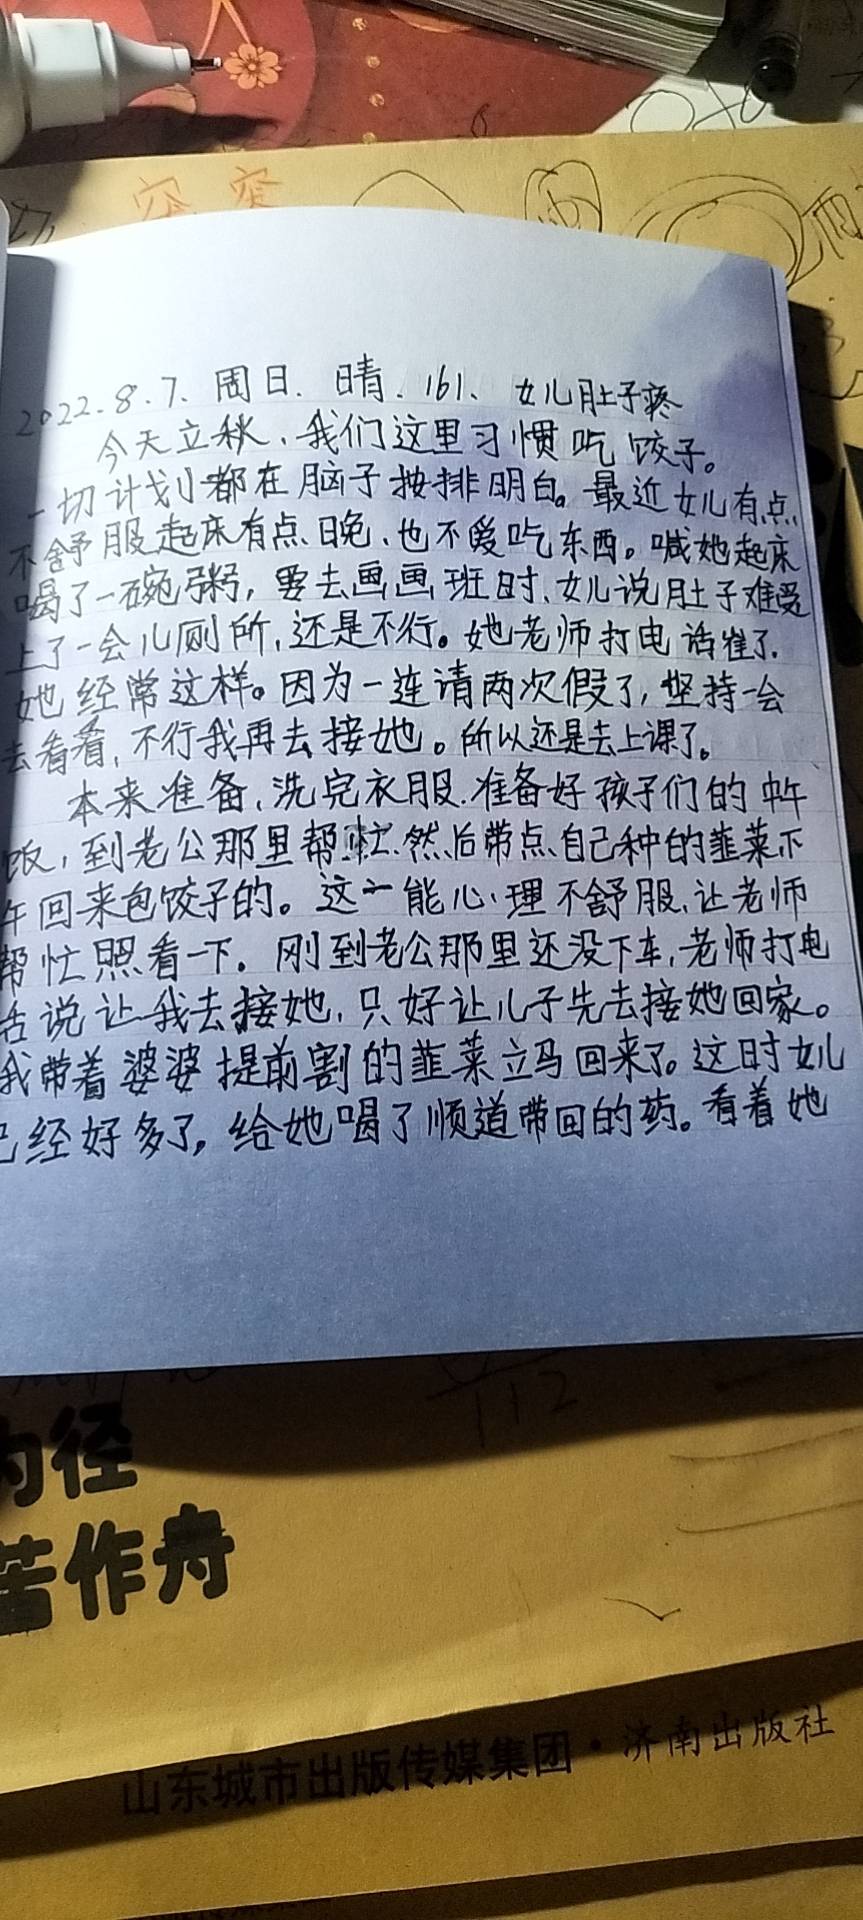 突 突
2022.8.7、周日. 晴. 161、女儿肚子疼
今天立秋、我们这里习惯吃饺子。
一切计划都在脑子按排明白。最近女儿有点
不舒服起床有点晚、也不爱吃东西。喊她起床
喝了一碗粥，要去画画班时、女儿说肚子难受
上了一会儿厕所，还是不行。她老师打电话崔了.
她经常这样。因为一连请两次假了，坚持一会
去看看，不行我再去接她。所以还是去上课了。
本来准备、洗完衣服.准备好孩子们的中午
饭，到老公那里帮忙.然后带点自己种的韭菜下
午回来包饺子的。这一能心理不舒服、让老师
帮忙照看一下. 刚到老公那里还没下车，老师打电
话说让我去接她，只好让儿子先去接她回家。
我带着婆婆提前割的韭菜立马回来了。这时女儿
已经好多了，给她喝了顺道带回的药。看着她
112
为径
苦作舟
山东城市出版传媒集团·济南出版社